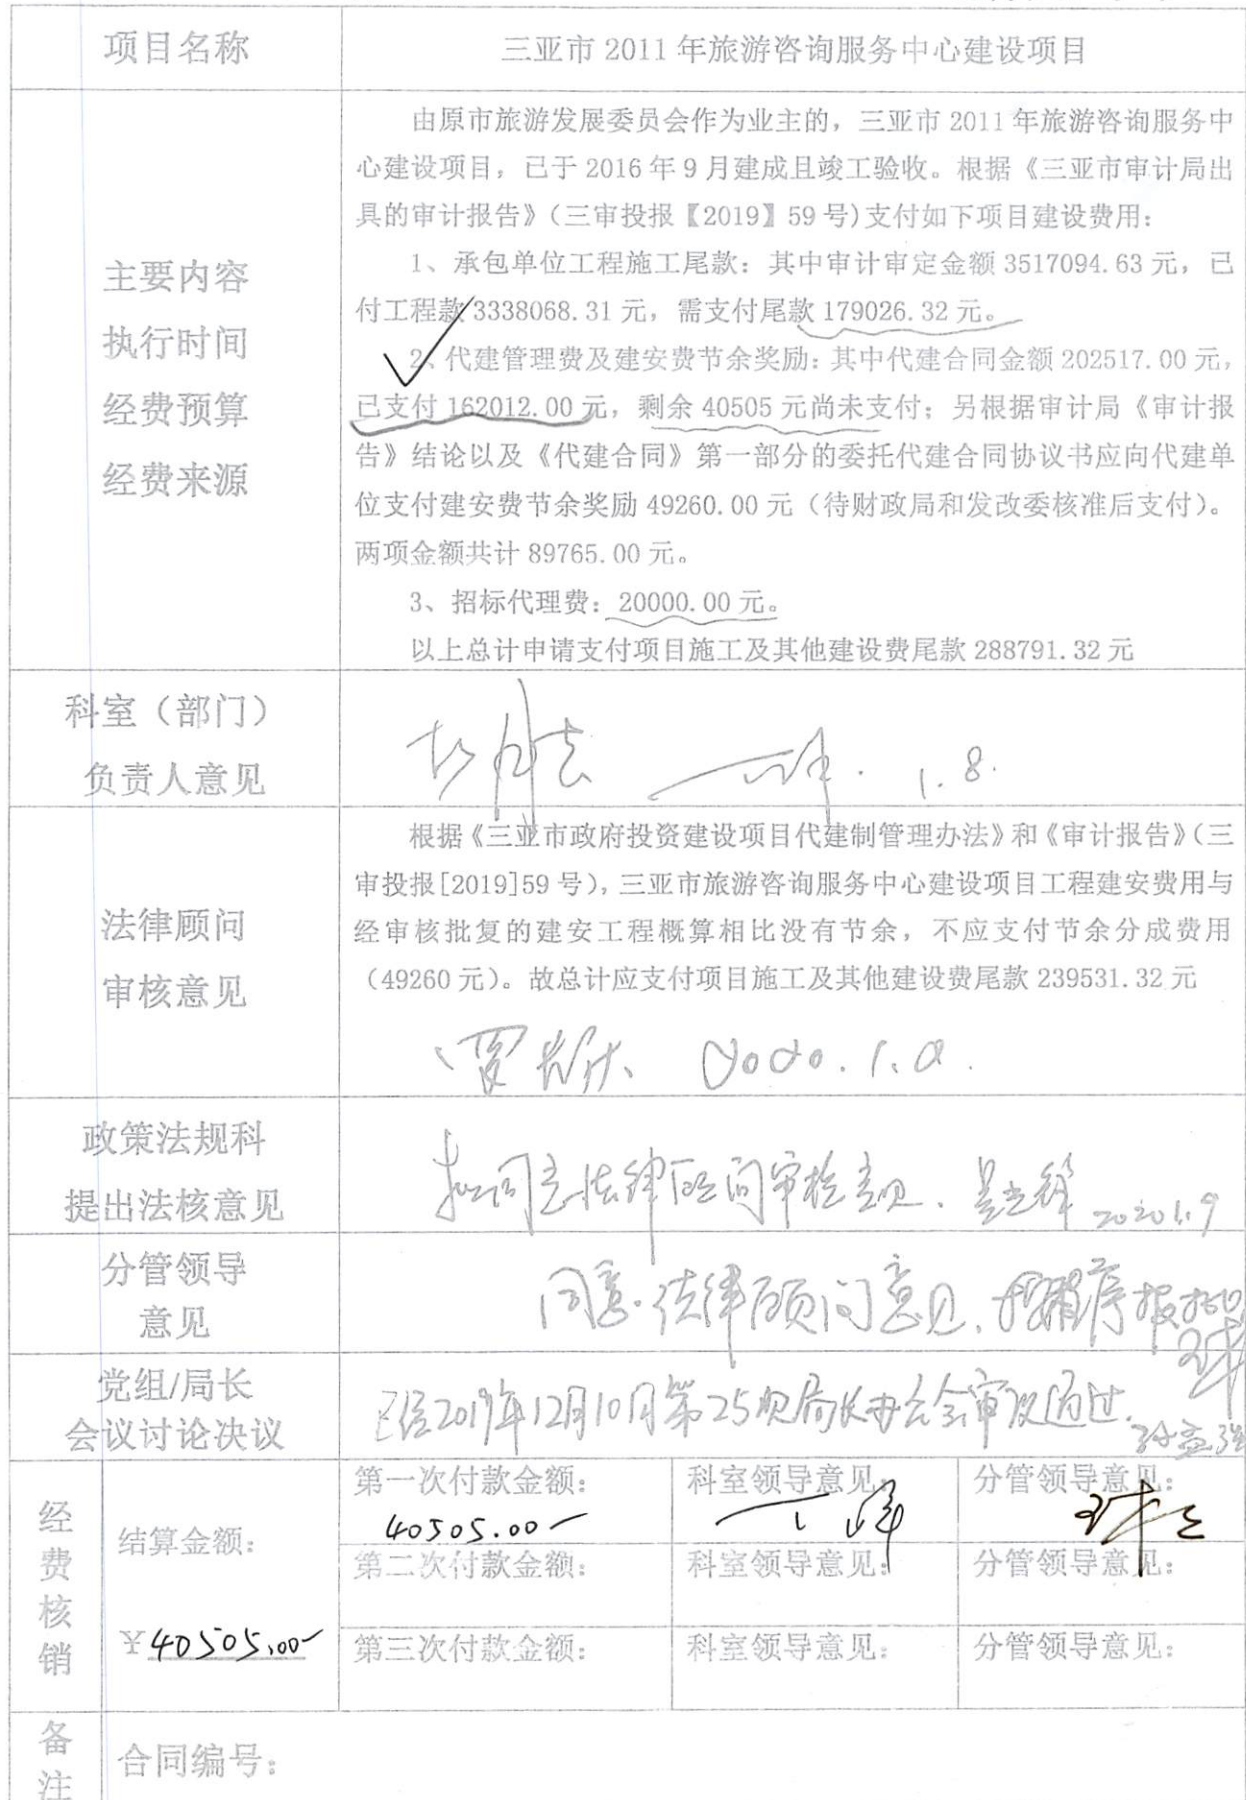 项目名称
三亚市 2011 年旅游咨询服务中心建设项目
主要内容
执行时间
经费预算
经费来源
由原市旅游发展委员会作为业主的，三亚市 2011 年旅游咨询服务中
心建设项目，已于 2016 年 9 月建成且竣工验收。根据《三亚市审计局出
具的审计报告》（三审投报【2019】59 号）支付如下项目建设费用：
1、承包单位工程施工尾款：其中审计审定金额 3517094.63 元，已
付工程款 3338068.31 元，需支付尾款 179026.32 元。
2、代建管理费及建安费节余奖励：其中代建合同金额 202517.00 元，
已支付 162012.00 元，剩余 40505 元尚未支付；另根据审计局《审计报
告》结论以及《代建合同》第一部分的委托代建合同协议书应向代建单
位支付建安费节余奖励 49260.00 元（待财政局和发改委核准后支付）。
两项金额共计 89765.00 元。
3、招标代理费：20000.00 元。
以上总计申请支付项目施工及其他建设费尾款 288791.32 元
科室（部门）
负责人意见
1.8.
法律顾问
审核意见
根据《三亚市政府投资建设项目代建制管理办法》和《审计报告》（三
审投报[2019]59 号），三亚市旅游咨询服务中心建设项目工程建安费用与
经审核批复的建安工程概算相比没有节余，不应支付节余分成费用
（49260 元）。故总计应支付项目施工及其他建设费尾款 239531.32 元
政策法规科
提出法核意见
拟同意法律顾问审核意见. 2020.1.9
分管领导
意见
同意法律顾问意见，按程序报批
党组/局长
会议讨论决议
已经2019年12月10日第25次局长办公会审议通过.
经费核销
结算金额：
￥40505.00
第一次付款金额：
40505.00
科室领导意见：
分管领导意见：
第二次付款金额：
科室领导意见：
分管领导意见：
第三次付款金额：
科室领导意见：
分管领导意见：
备注
合同编号：